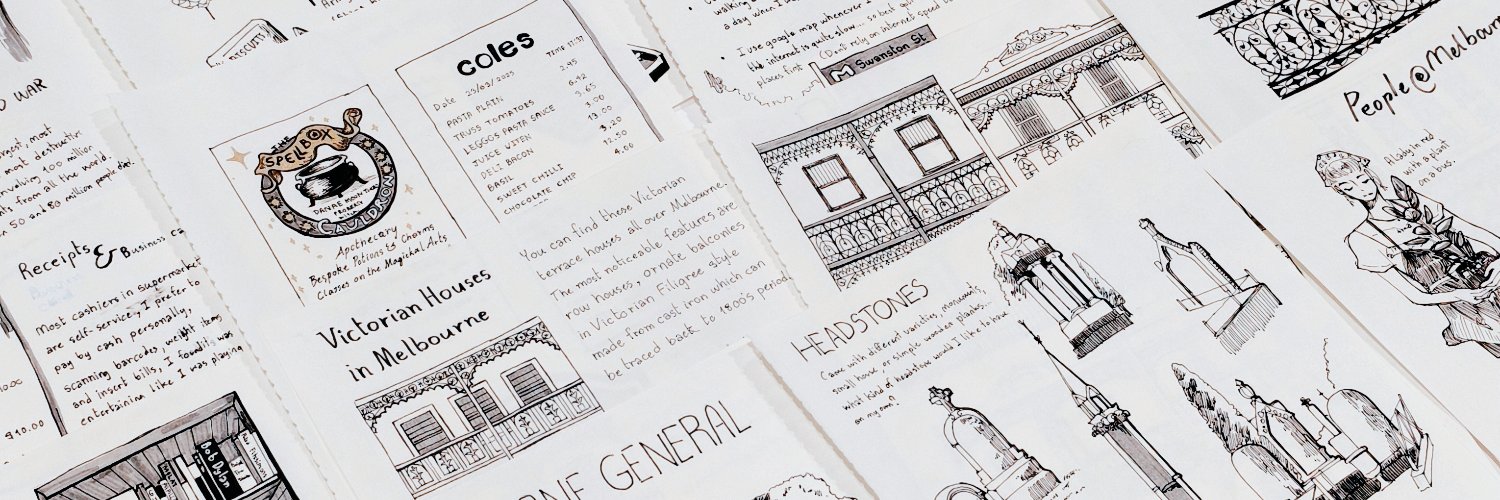 O WAR
most
most destructive
involving 100 million
from all over the world.
50 and 80 million people die.
Receipts & Business ca
most cashiers in supermarket
are self-services, I prefer to
pay by cash personally,
scanning barcodes, weight items
and insert bills, I found it was
entertaining like I was playing
$10.00
Bob Dylan
BISCUITS
THE
SPELLBOX
DAVAE MOON TIDE
PROPERTY
CAULDRON
Apothecary
Bespoke Potions & Charms
Classes on the Magickal Arts
coles
Date 29/03/2023
ITEMS
PASTA PLAIN 2.95
TRUSS TOMATOES 6.42
LEGGOS PASTA SAUCE 3.65
JUICE VITEN
DELI BACON
BASIL
SWEET CHILLI
CHOCOLATE CHIP
3.20
12.50
4.00
Victorian Houses
in Melbourne
You can find these Victorian
terrace houses all over Melbourne.
The most noticeable features are
row houses, ornate balconies
in Victorian Filigree style
made from cast iron which can
be traced back to 1800s period
NE GENERAL
walking
a day when I
I use google map whenever I
the internet is quite slow... so but
places first (Don't rely on internet speed
M Swanston St.
HEADSTONES
Came with different varieties, monuments,
small house or simple wooden planks...
what kind of headstone would I like to have
on my own?
People @ Melbourn
A lady in red
with a plant
on a bus.